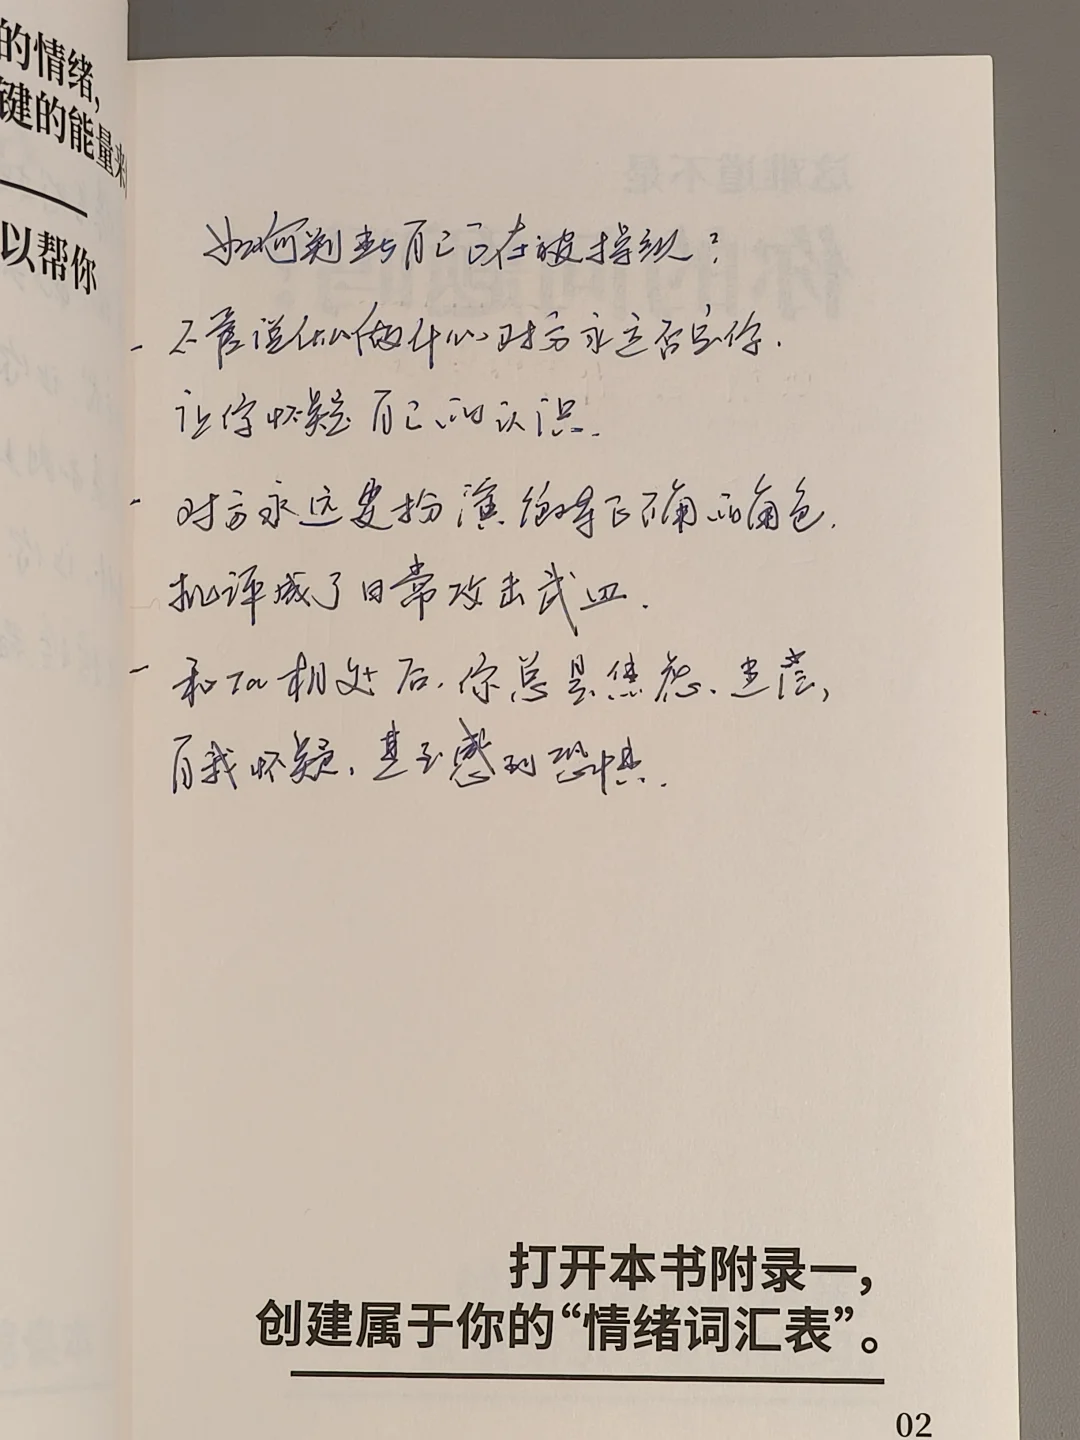 的情绪,
键的能量来
以帮你
如何判断自己正在被操纵?
- 不管说什么做什么,对方永远否定你.
让你怀疑自己的认识.
- 对方永远要扮演绝对正确的角色.
批评成了日常攻击武器.
- 和Ta相处后,你总是焦虑、
自我怀疑,甚至感到恐惧.
打开本书附录一,
创建属于你的“情绪词汇表”。
02